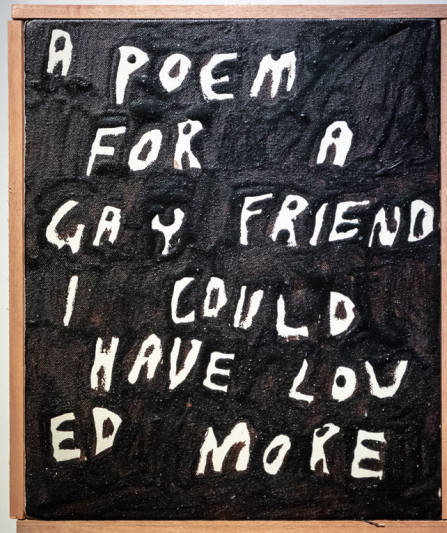 A POEM
FOR A
GAY FRIEND
I COULD
HAVE LOV
ED MORE